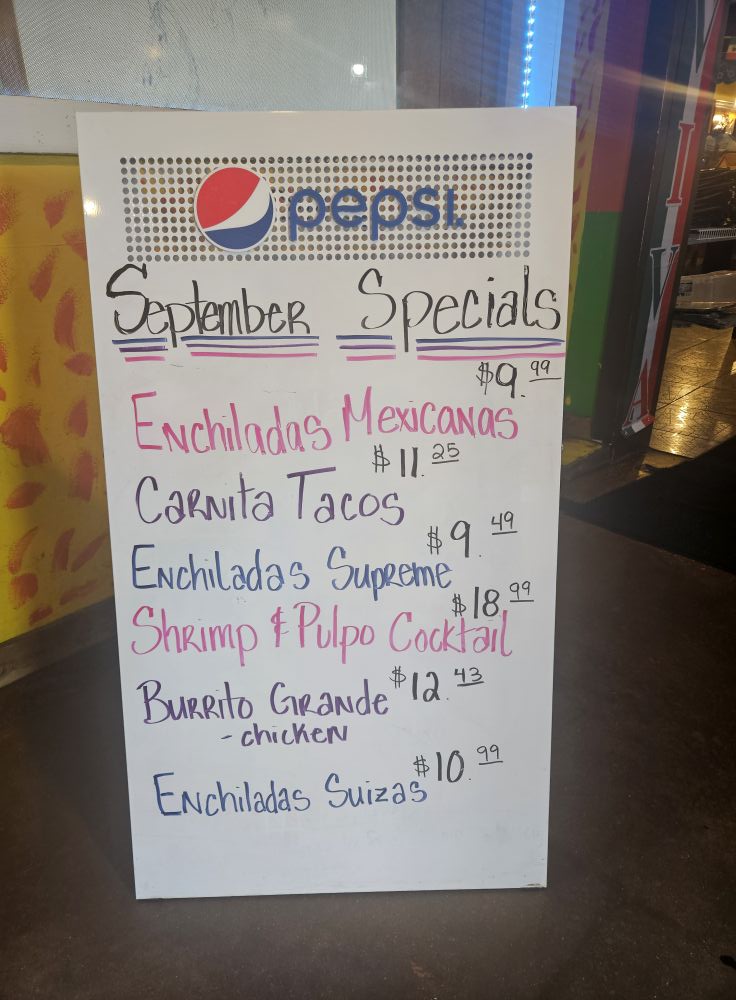 pepsi.
September Specials
$9.99
Enchiladas Mexicanas
$11.25
Carnita Tacos
$9.49
Enchiladas Supreme
$18.99
Shrimp & Pulpo Cocktail
$12.43
Burrito Grande
- chicken
$10.99
Enchiladas Suizas
VIVA